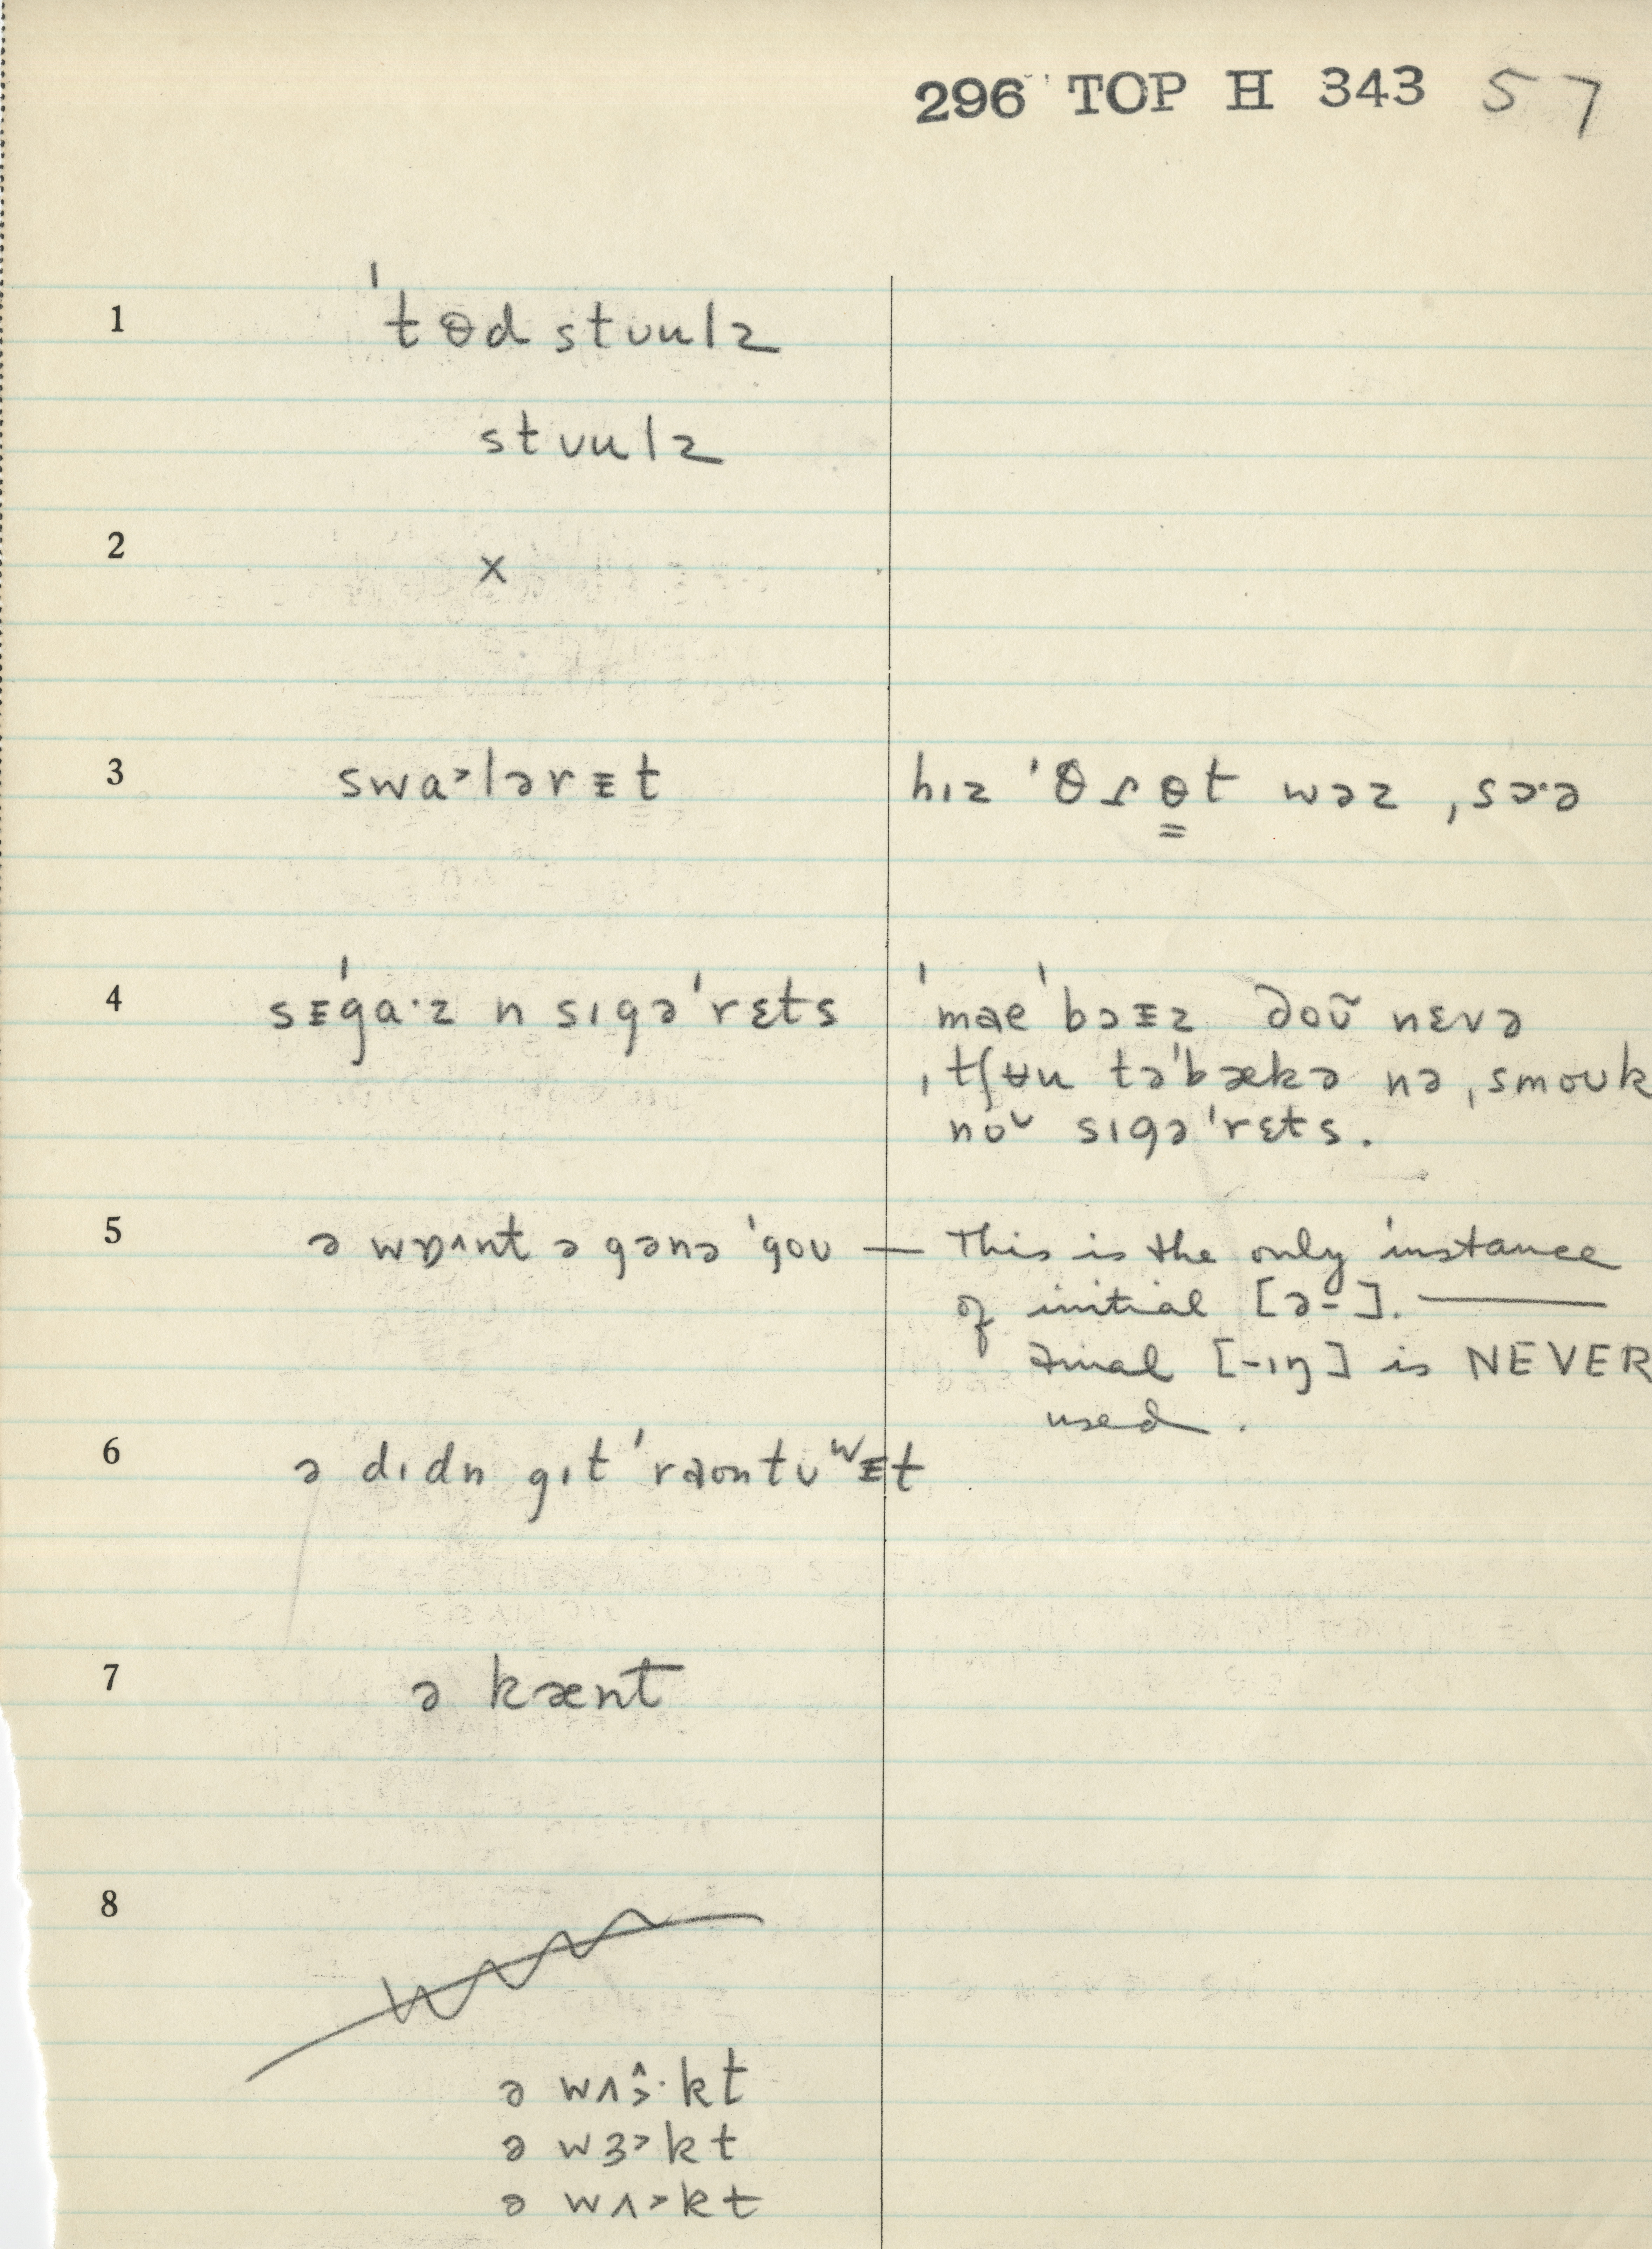 296 TOP H 343 57
1 ˈtɵd stʊulz
stʊulz
2 x
3 swa˃lərᵻt hɪz ˈθɾɵt wəz ˌsɔ·ə
4 sᵻˈga·z n sɪgəˈrɛts ˈmaeˈbɔᵻz ðoʊ̆ nɛvə
ˌtʃʉu təˈbækə nə ˌsmoʊk
noʊ̆ sɪgəˈrɛts.
5 ə wɒ^nt ə gənə ˈgoʊ — This is the only instance
of initial [ə-].
Final [-ɪŋ] is NEVER
used.
6 ə dɪdn gɪt ˈraʊntʊʷᵻt
7 ə kænt
8
ə wʌ˄˃·kt
ə wɜ˃kt
ə wʌ˃kt